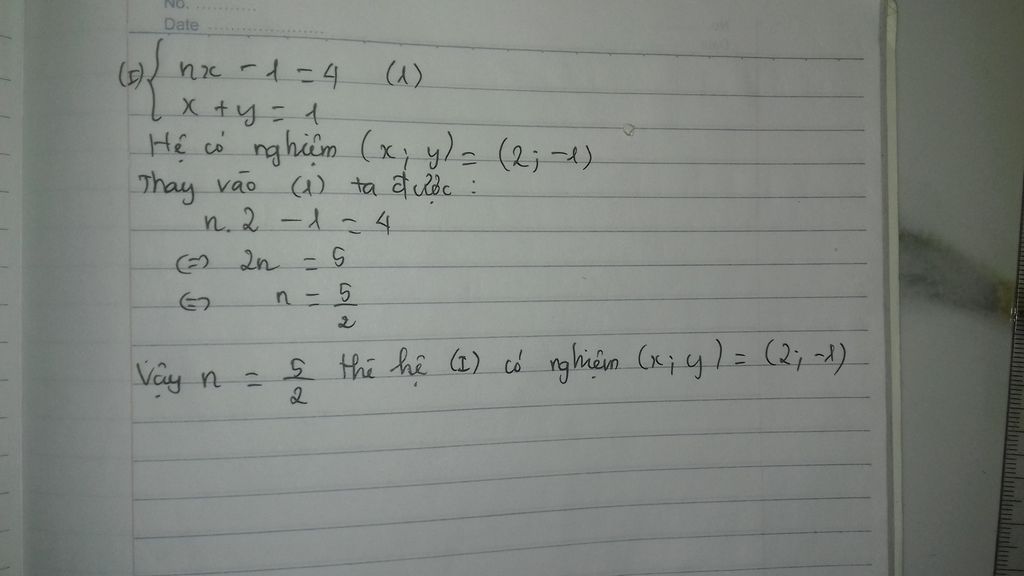 No. ............
Date ......................
(I) { nx - 1 = 4 (1)
x + y = 1
Hệ có nghiệm (x; y) = (2; -1)
Thay vào (1) ta được:
n. 2 - 1 = 4
<=> 2n = 5
<=> n = 5/2
Vậy n = 5/2 thì hệ (I) có nghiệm (x; y) = (2; -1)